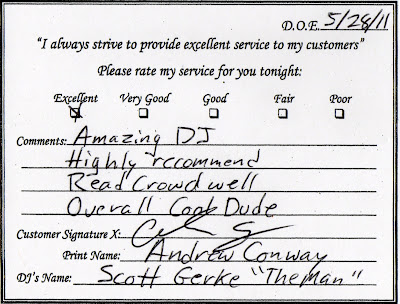 D.O.E. 5/28/11
"I always strive to provide excellent service to my customers"
Please rate my service for you tonight:
Excellent Very Good Good Fair Poor
Comments: Amazing DJ
Highly reccommend
Read Crowd well
Overall Cool Dude
Customer Signature X:
Print Name: Andrew Conway
DJ's Name: Scott Gerke "The Man"